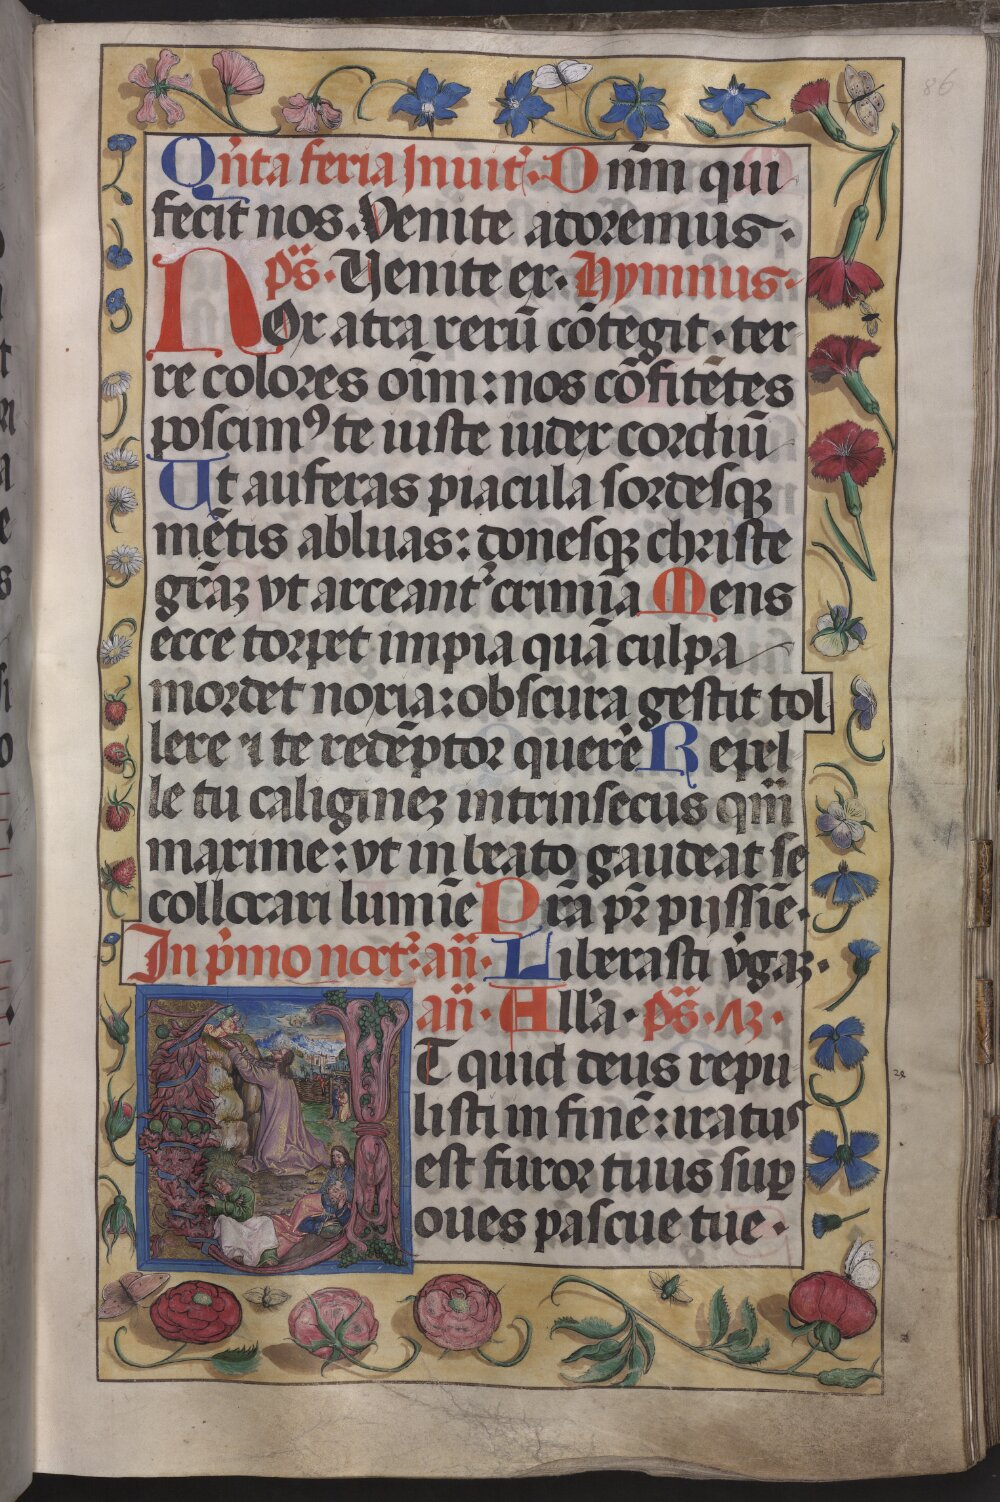 86
Qn̄ta feria Inuit᷒. Dnīm qui
fecit nos. Venite adoremus.
p̄s. Venite ex. Hymnus.
NOx atra rerū cōtegit. ter
re colores oīm: nos cōfitētes
poscimꝰ te iuste iudex cordiū
Ut auferas piacula sordesqꝫ
mētis abluas: donesqꝫ christe
grāꝫ vt arceant᷒ crimīa Mens
ecce torpet impia quā culpa
mordet noxia: obscura gestit tol
lere ⁊ te redēptor querēe Repel
le tu caligineꝫ intrinsecus qm̄
maxime: vt in beato gaudeat se
collocari lumīe Prā pr̄ pijssīe.
In p̄mo noct᷒. an̄. Liberasti v̄gaꝫ.
an̄. Alla. p̄s. Aꝫ.
UT quid deus repu
listi in finē: iratus
est furor tuus suꝑ
oues pascue tue.